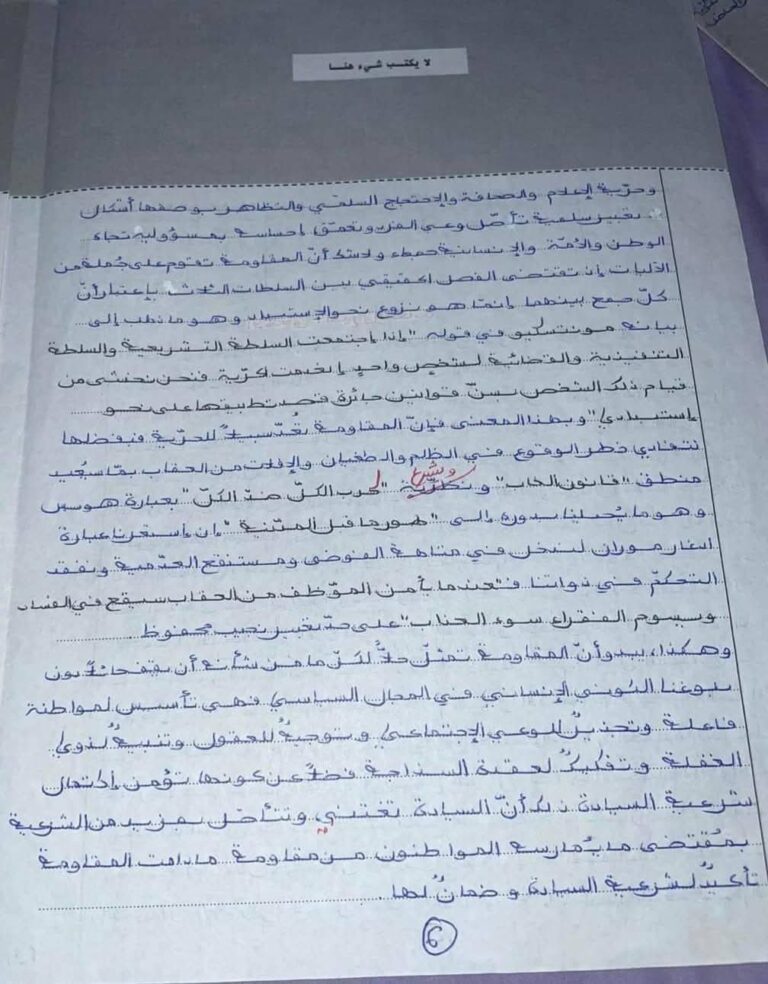 لا يكتب شيء هنا
وحريّة الإعلام والصحافة والإحتجاج السلمي والتظاهر بوصفها أشكال
تعبير سلمية تأصّل وعي الفرد وتعمّق إحساسه بمسؤوليته تجاه
الوطن والأمّة والإنسانية جمعاء ولاشك أنّ المقاومة تقوم على جملة من
الآليات إذ تقتضي الفصل الحقيقي بين السلطات الثلاث بإعتبار أنّ
كلّ جمع بينهما إنّما هو نزوع نحو الإستبداد وهو ما ذهب إلى
بيانه مونتسكيو في قوله "إذا إجتمعت السلطة التشريعية والسلطة
التنفيذية والقضائية لشخص واحد إنعدمت الحرّية فنحن نخشى من
قيام ذلك الشخص بسنّ قوانين جائرة قصد تطبيقها على نحو
إستبدادي" وبهذا المعنى فإنّ المقاومة تُعدّ سبيلاً للحرّية فبفضلها
نتفادى خطر الوقوع في الظلم والطغيان والإفلات من العقاب بما سيُعيد
منطق "قانون الغاب" و ويشرع لحرب الكلّ ضدّ الكلّ" بعبارة هوبس
وهو ما يُحيلنا بدوره إلى "طور ما قبل المدنية" إن إستعرنا عبارة
ادغار موران لندخل في متاهة الفوضى ومستنقع العدمية ونفقد
التحكّم في ذواتنا فـ"عندما يأمن الموّظف من العقاب سيقع في الفساد
ويسوم الفقراء سوء العذاب" على حدّ تعبير نجيب محفوظ
وهكذا، يبدو أنّ المقاومة تمثّل حلاًّ لكلّ ما من شأنه أن يقف حائلاً دون
بلوغنا الكوني الإنساني في المجال السياسي فهي تأسيس لمواطنة
فاعلة وتجذيرٌ للوعي الإجتماعي وتوجيهٌ للعقول وتنبيهٌ لذوي
الغفلة وتفكيكٌ لعقدة السذاجة فضلاً عن كونها تؤمن إكتمال
شرعية السيادة ذلك أنّ السيادة تغتني وتتأصّل بمزيد من الشرعية
بمُقتضى ما يُمارسه المواطنون من مقاومة ما دامت المقاومة
تأكيدٌ لشرعية السيادة وضمانٌ لها.
6